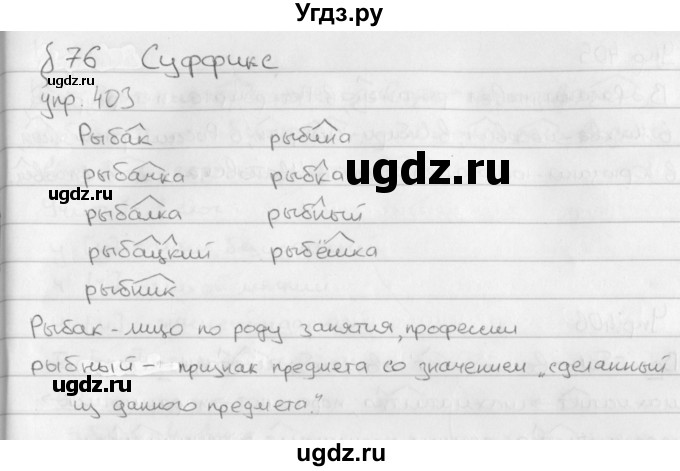 Угдз.ру
§ 76 Суффикс
упр. 403
Рыбак рыбина
рыбачка рыбка
рыбалка рыбный
рыбацкий рыбёшка
рыбник
Рыбак - лицо по роду занятия, профессии
рыбный - признак предмета со значением „сделанный
из данного предмета".
ugdz.ru
ugdz.ru
ugdz.ru
ugdz.ru
ugdz.ru
ugdz.ru
ugdz.ru
ugdz.ru